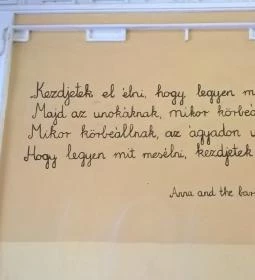 Kezdjetek el élni, hogy legyen m
Majd az unokáknak, mikor körbeá
Mikor körbeállnak, az ágyadon
Hogy legyen mit mesélni, kezdjetek
Anna and the bar